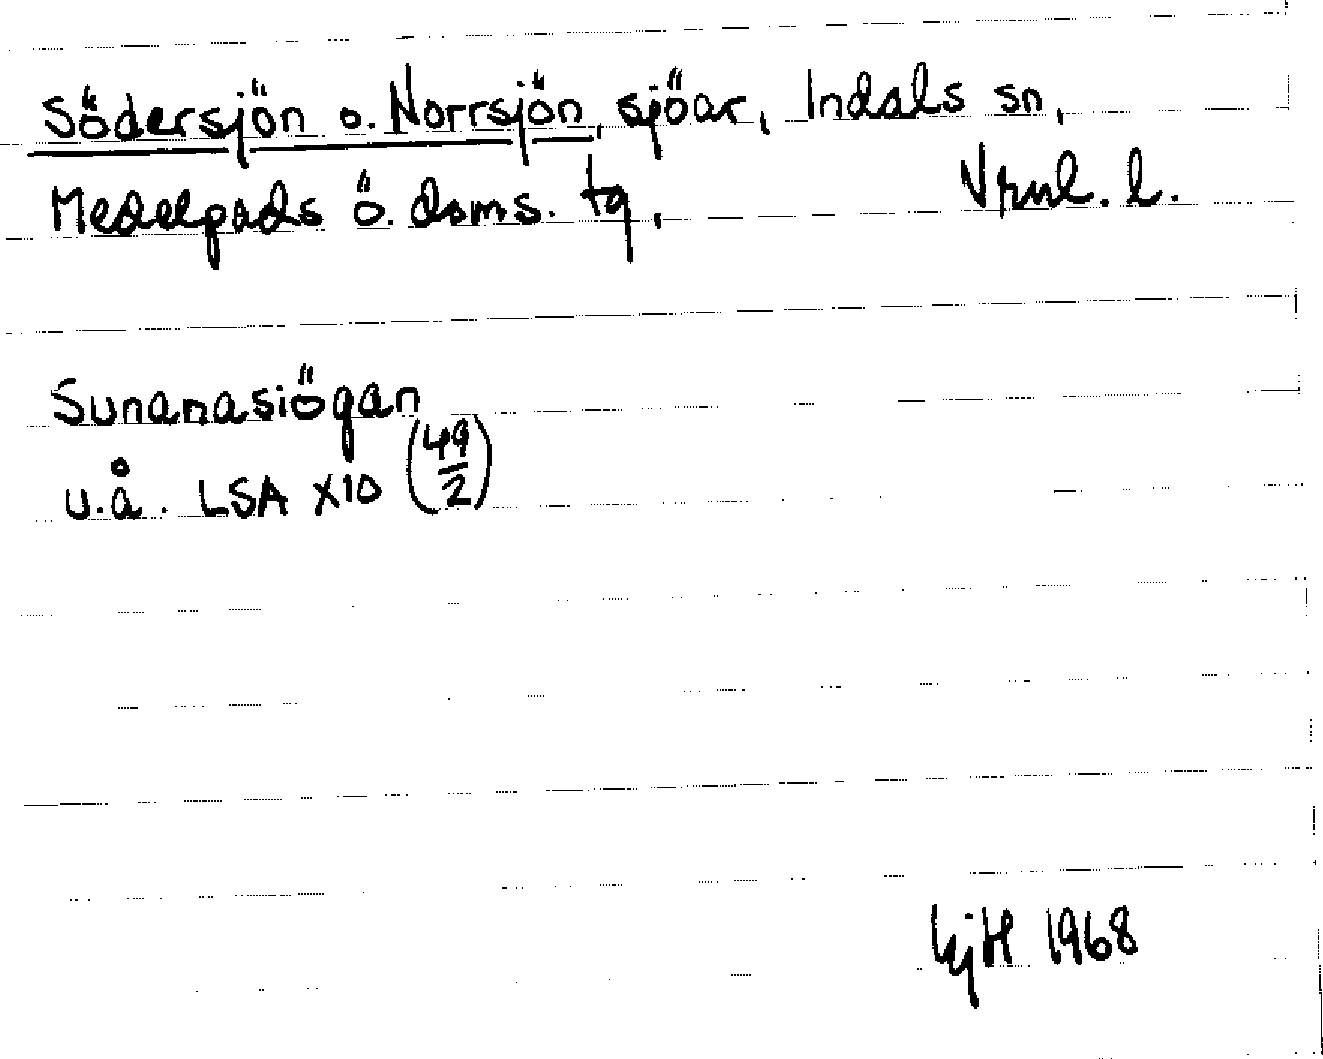 Södersjön o. Norrsjön, sjöar, Indals sn,
Medelpads ö. doms. tg, Vrnl. l.
Sunanasiögan
u.å. LSA X10 (49/2)
1968